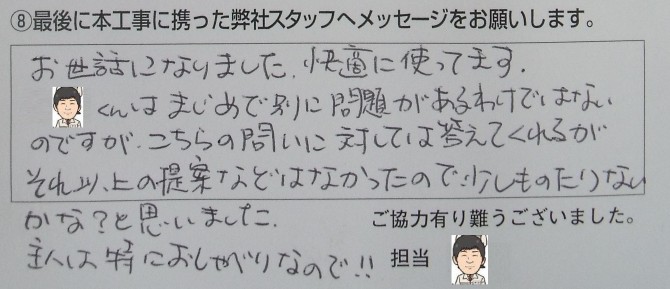 ⑧最後に本工事に携った弊社スタッフへメッセージをお願いします。
お世話になりました。快適に使ってます。
くんはまじめで別に問題があるわけではない
のですが、こちらの問いに対しては答えてくれるが
それ以上の提案などはなかったので少しものたりない
かな?と思いました。
ご協力有り難うございました。
主人は特におしゃべりなので!!
担当